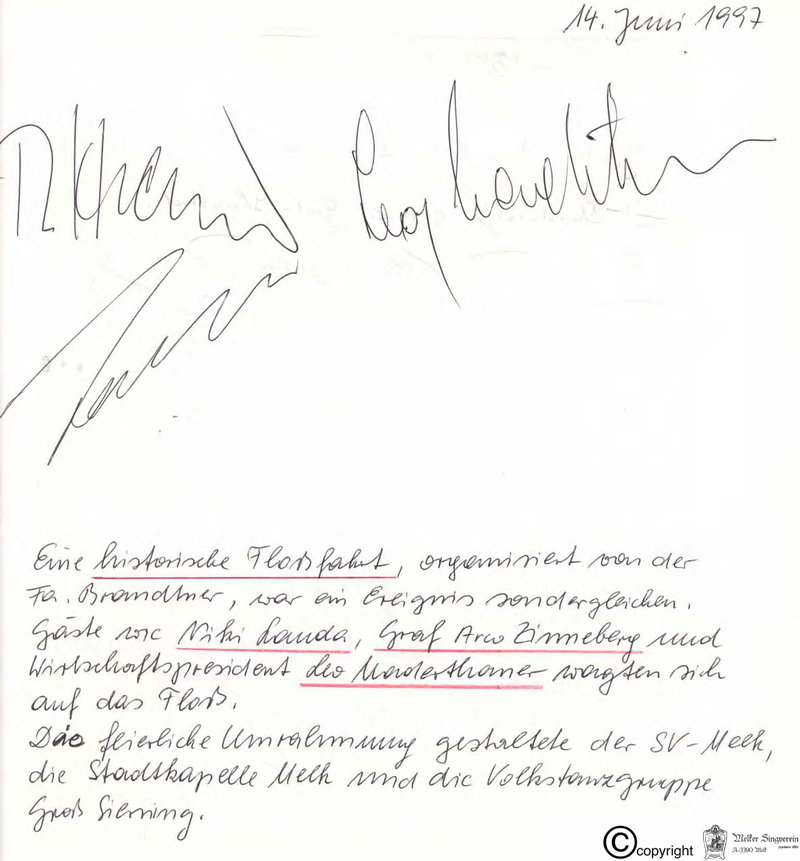 14. Juni 1997
Eine historische Floßfahrt, organisiert von der
Fa. Brandtner, war ein Ereignis sondergleichen.
Gäste wie Niki Lauda, Graf Arco Zinneberg und
Wirtschaftspresident Leo Maderthaner wagten sich
auf das Floß.
Die feierliche Umrahmung gestaltete der SV-Melk,
die Stadtkapelle Melk und die Volkstanzgruppe
Groß Sierning.
© copyright
Melker Singverein
A-3390 Melk